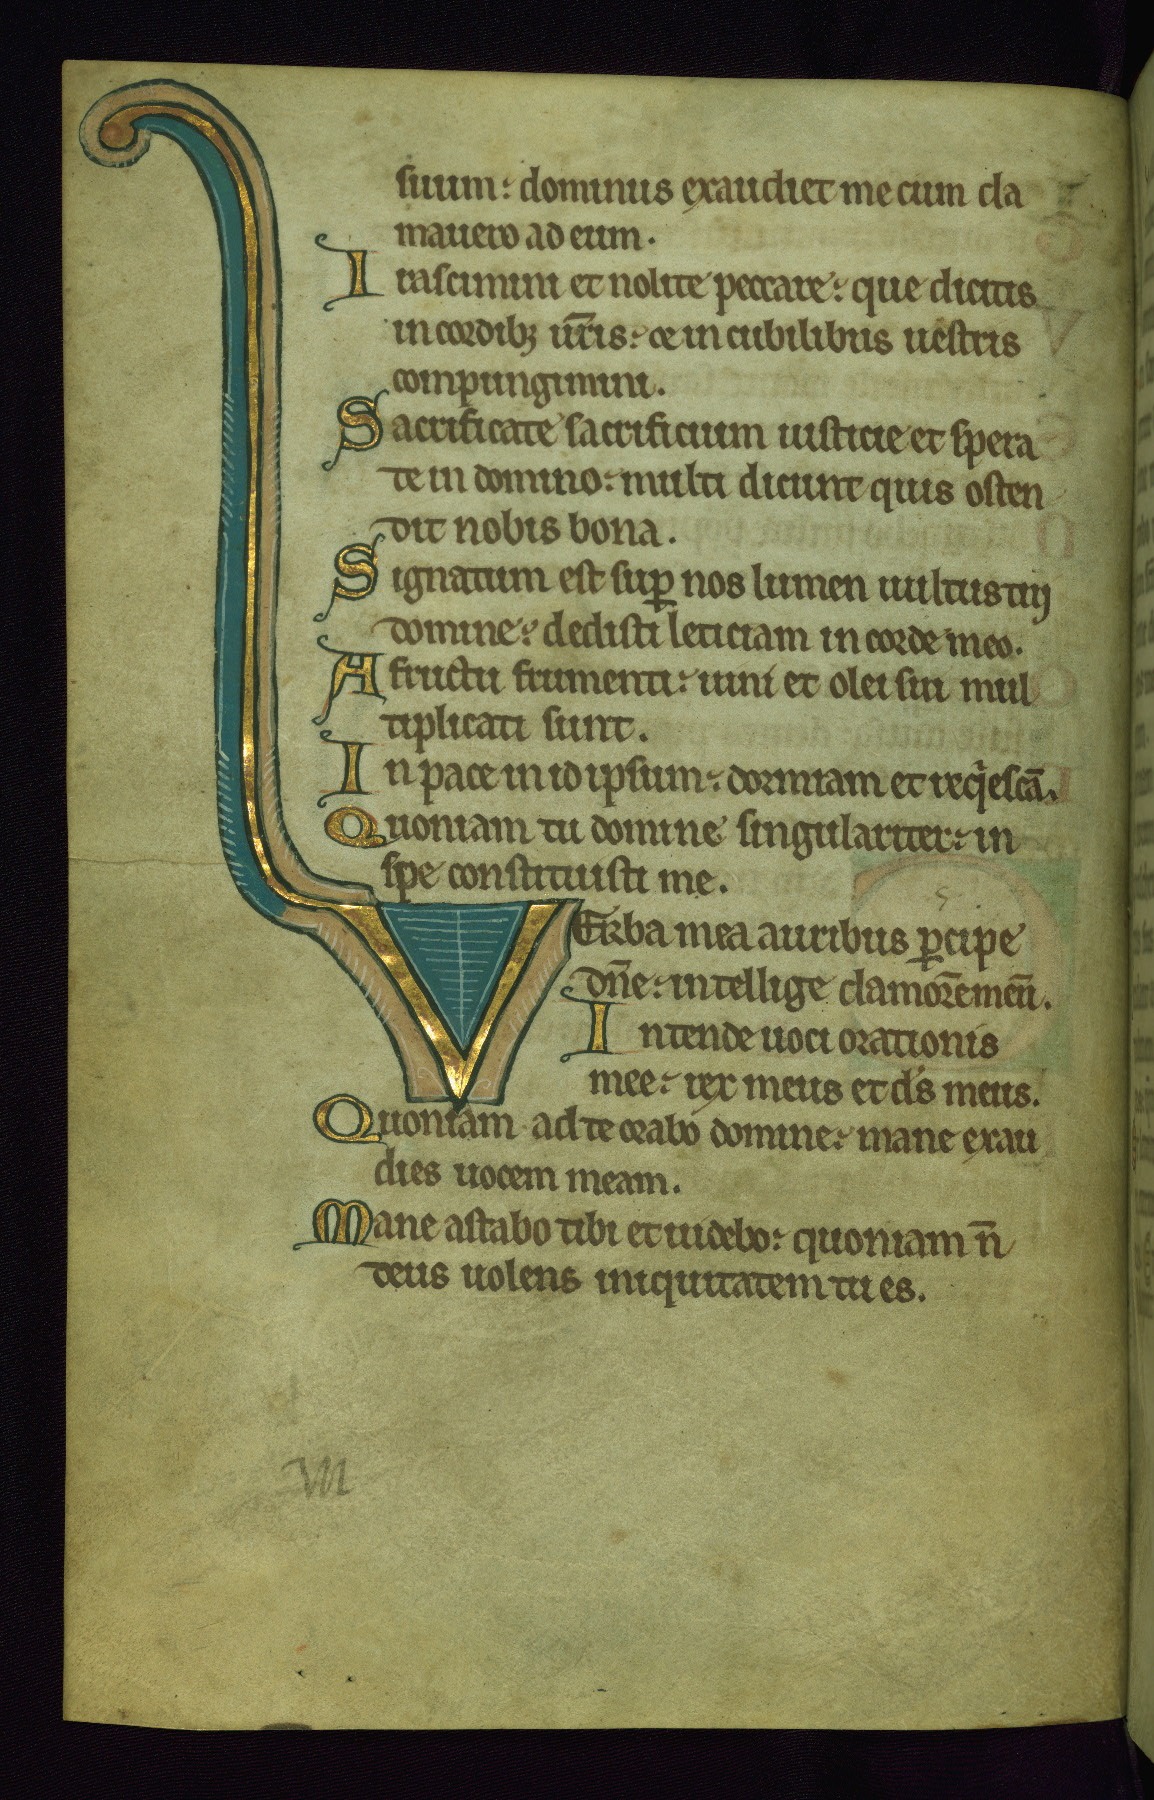 suum: dominus exaudiet me cum cla
mauero ad eum.
Irascimini et nolite peccare: que dicitis
in cordibꝫ ur̄is: et in cubilibus uestris
compungimini.
Sacrificate sacrificium iusticie et spera
te in domino: multi dicunt quis osten
dit nobis bona.
Signatum est suꝑ nos lumen uultus tuj
domine: dedisti leticiam in corde meo.
A fructu frumenti: uini et olei sui mul
tiplicati sunt.
In pace in id ipsum: dormiam et reqͥescā.
Quoniam tu domine singulariter: in
spe constituisti me.
VErba mea auribus ꝑcipe
dn̄e: intellige clamorē meū.
Intende uoci orationis
mee: rex meus et d̄s meus.
Quoniam ad te orabo domine: mane exau
dies uocem meam.
Mane astabo tibi et uidebo: quoniam n̄
deus uolens iniquitatem tu es.